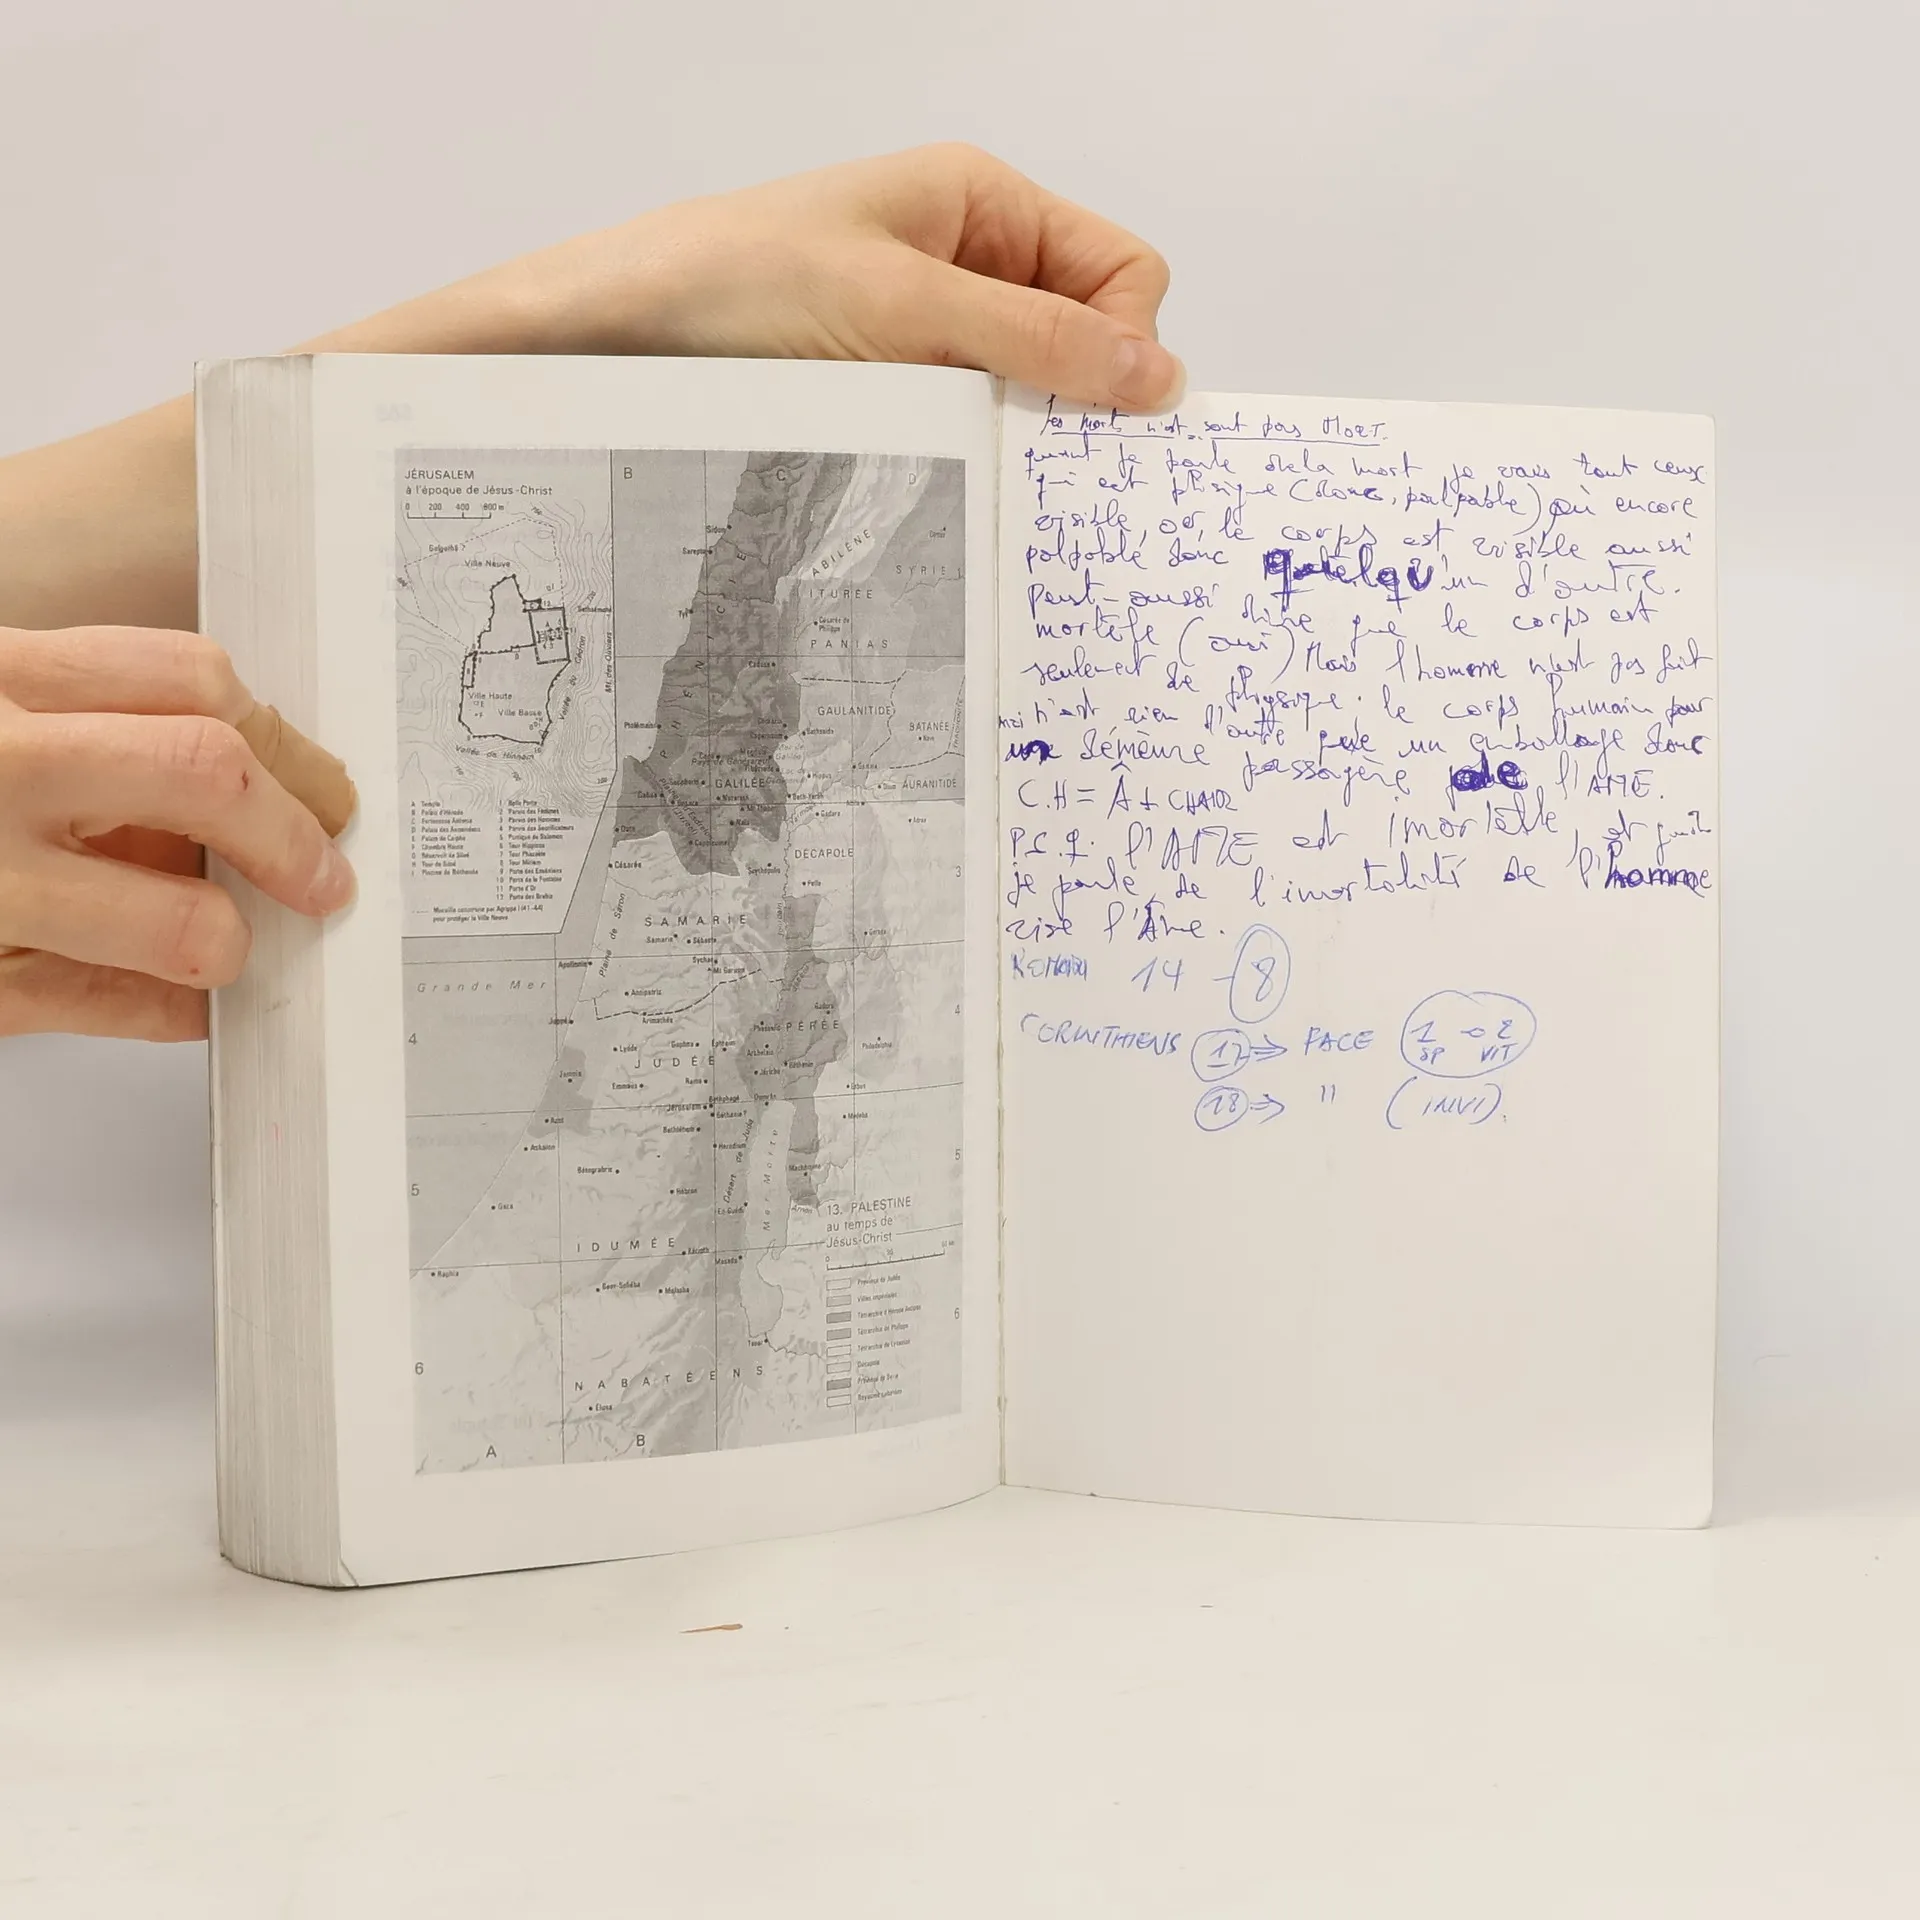 JÉRUSALEM
à l'époque de Jésus-Christ
0 200 400 600 m
Golgotha ?
Ville Neuve
Gethsémané
Ville Haute
Ville Basse
Vallée du Cédron
Vallée de Hinnom
Mt. des Oliviers
A Temple
B Palais d'Hérode
C Forteresse Antonia
D Palais des Asmonéens
E Palais de Caïphe
F Chambre Haute
G Réservoir de Siloé
H Tour de Siloé
I Piscine de Béthesda
1 Belle Porte
2 Parvis des Femmes
3 Parvis des Hommes
4 Parvis des Sacrificateurs
5 Portique de Salomon
6 Tour Hippicus
7 Tour Phasaële
8 Tour Miriam
9 Porte des Esséniens
10 Porte de la Fontaine
11 Porte d'Or
12 Porte des Brebis
Muraille construite par Agrippa I (41-44)
pour protéger la Ville Neuve
B C D
Sidon
Sarepta
ABILÈNE
SYRIE
ITURÉE
Tyr
Césarée de
Philippe
PANIAS
PHÉNICIE
Cadasa
GAULANITIDE
BATANÉE
Ptolémaïs
Bethsaïda
GALILÉE
AURANITIDE
Nazareth
Gadara
Dora
DÉCAPOLE
3
Césarée
Scythopolis
Pella
Plaine de Saron
SAMARIE
Samarie
Sébaste
Sychar
Mt Garizim
Gerasa
Apollonie
Grande Mer
Antipatris
4
Joppé
Arimathée
Gadora
PÉRÉE
4
Lydde
Gophna
Éphraïm
Philadelphie
JUDÉE
Archélaïs
Jamnia
Emmaüs
Rama
Jéricho
Jérusalem
Bethphagé
Béthanie ?
Qumrân
Azot
Bethléhem
Medeba
Askalon
Hérodium
5
Bénograbris
Désert de Juda
Mer Morte
5
Gaza
Hébron
En-Guédi
Arnon
13. PALESTINE
au temps de
Jésus-Christ
IDUMÉE
Masada
Raphia
Beer-Schéba
Malatha
6
Province de Judée
Villes impériales
Tétrarchie d'Hérode Antipas
Tétrarchie de Philippe
Tétrarchie de Lysanias
Décapole
Province de Syrie
Royaume nabatéen
6
NABATÉENS
Élusa
A B
Les morts n'est sont pas MORT.
quant je parle dela mort je vais tout ceux
qui est phisique (donc, palpable) où encore
visible, or, le corps est visible aussi
palpable donc quelqu'un d'autre.
peut-aussi dire que le corps est
mortèle (oui) Mais l'homme n'est pas fait
seulement de physique. le corps humain pour
moi n'est rien d'autre que un emballage donc
une démeure passagère de l'AME.
C.H = Â + CHAIR
P.C.q. l'AME est imortèlle, et quant
je parle de l'imortalité de l'homme
vise l'Âme.
ROMAIN 14 - 8
CORINTHIENS 17 => FACE 1 SP 2 VIT
18 => " (INVI).